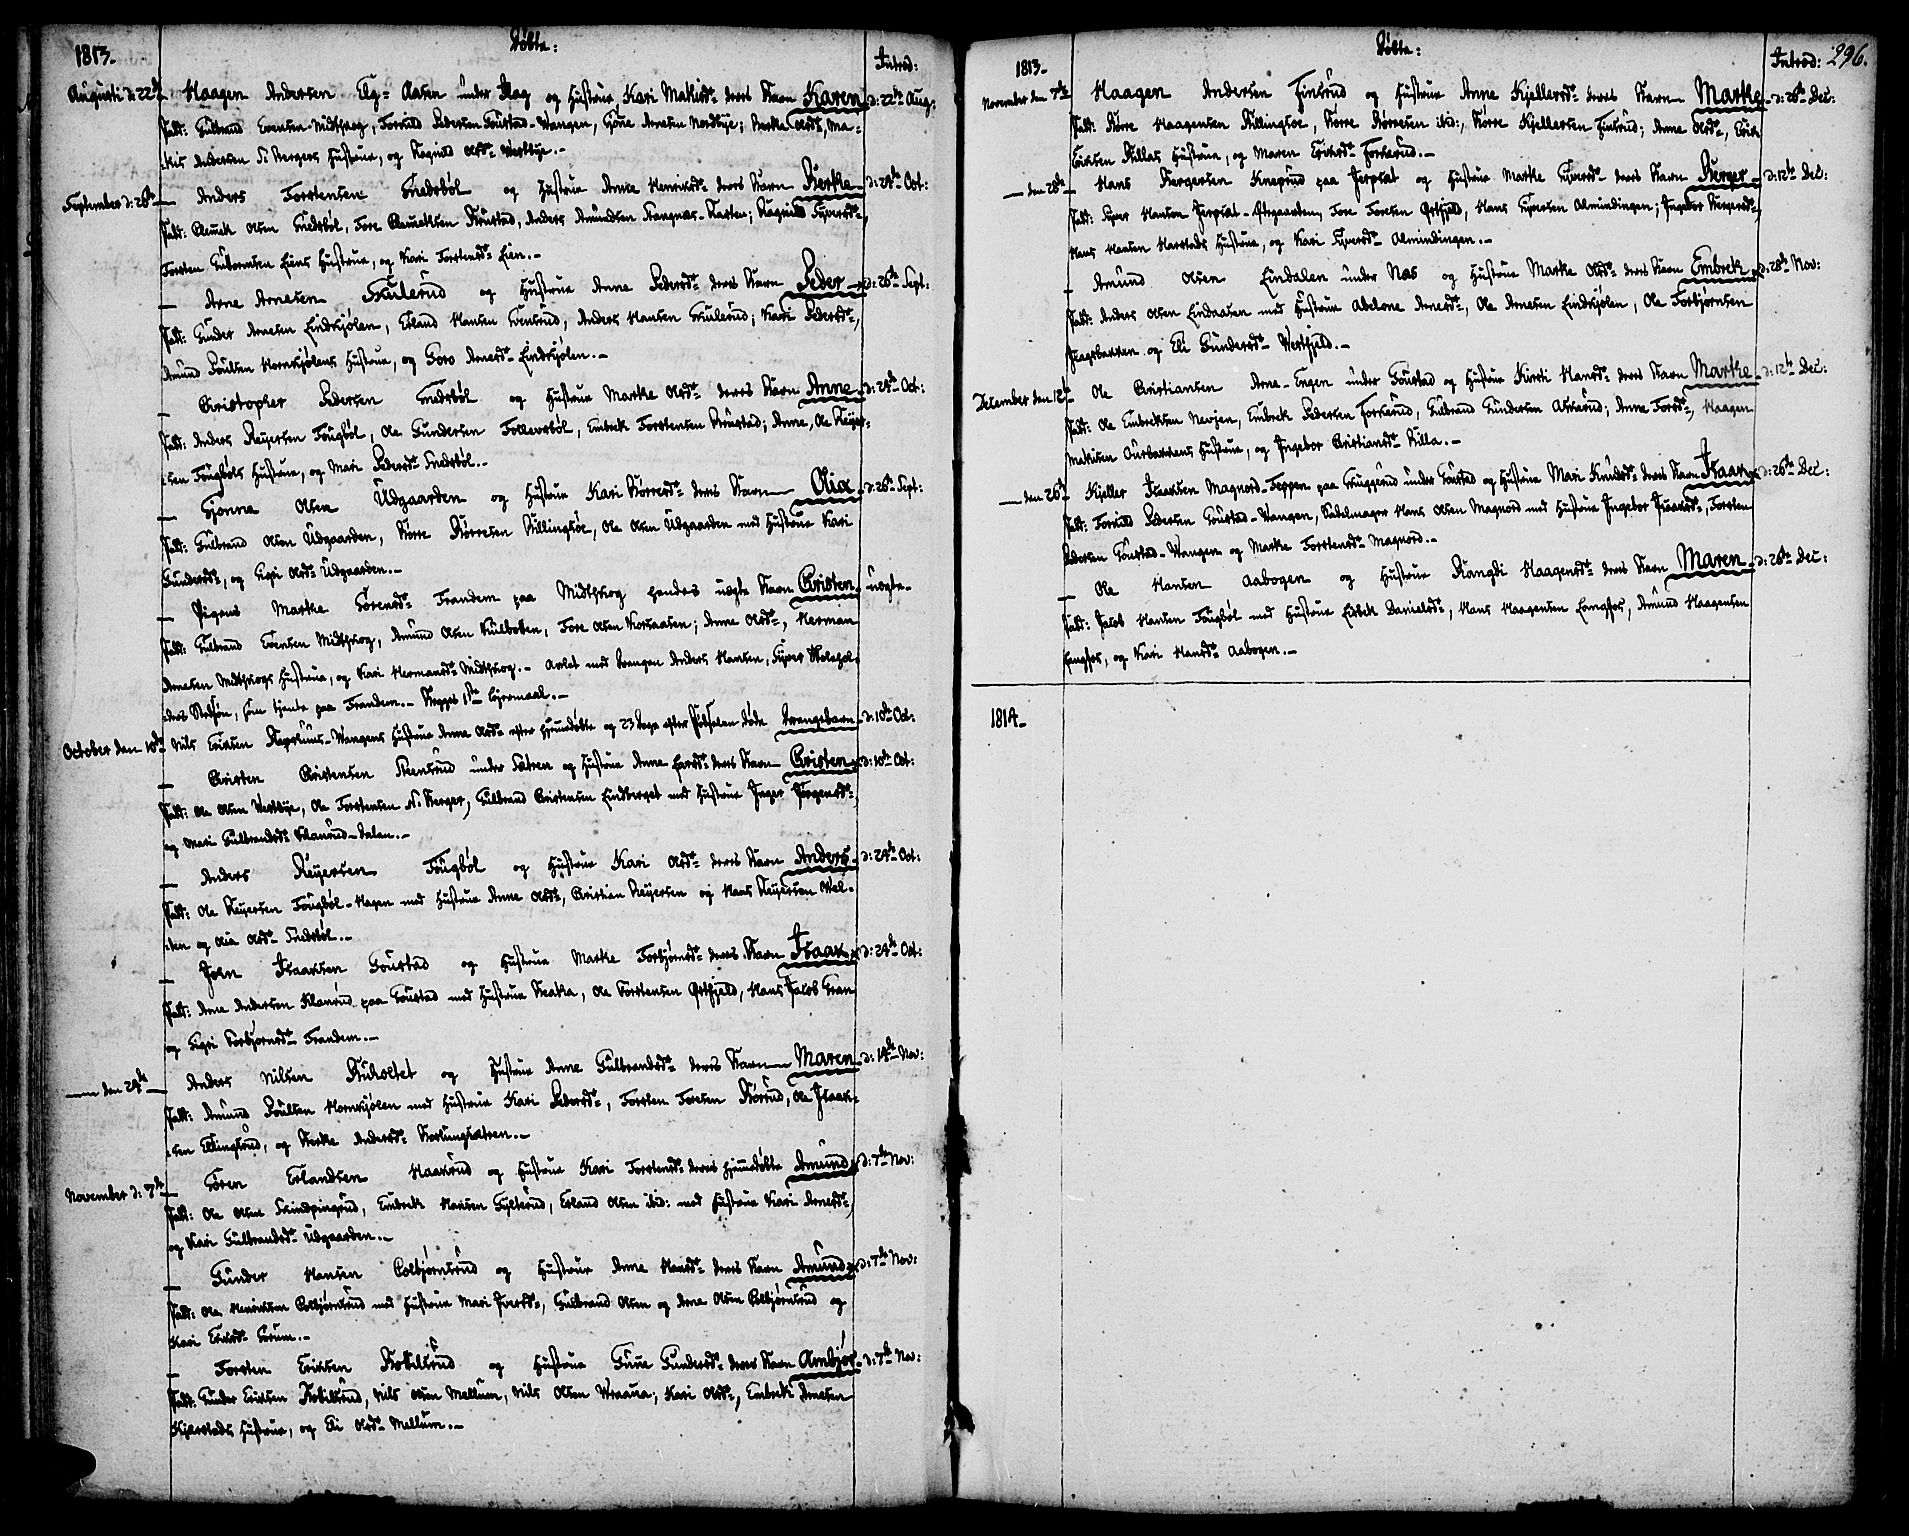 1813. Døbte: Introd:
Augusti d: 22de Haagen Andersen Elg-Aasen under Hag og Hustrue Kari Makisd. deres Barn Karen d: 22de Aug:
Fadd: Gulbrand Evensen Midtskog, Torkild Pedersen Goustad-Wangen, Gøne Arnesen Nordbye; Berthe Olsd., Ma-
kis Andersen N. Bergers Hustrue, og Ragnild Olsd. Westbye.
September d: 26de Anders Torstensen Snedsbøl og Hustrue Anne Henriksd. deres Barn Berthe d: 24de Oct:
Fadd: Olsen Snedsbøl, Tore Brustad, Anders Amundsen; Ragnild Syversd.,
Torsten Guttormsen Liens Hustrue, og Kari Torstensd. Lien.
Arne Arnesen Skulerud og Hustrue Anne Pedersd. deres Barn Peder d: 26de Sept:
Fadd: Gunder Arnesen Lindkjølen, Erland Hansen, Anders Hansen Skulerud; Kari Pedersd.,
Amund Poulsen Hornkjølens Hustrue, og Goro Arnesd. Lindkjølen.
Christopher Pedersen Snedsbøl og Hustrue Marthe Olsd. deres Barn Anne d: 24de Oct:
Fadd: Anders Reyersen Fougbøl, Ole Gundersen Tollevsbøl, Embrek Torstensen Brustad; Anne, Ole Reyer-
sen Fougbøls Hustrue, og Mari Pedersd. Snedsbøl.
Gønne Olsen Udgaarden og Hustrue Kari Børresd. deres Barn Olia d: 26de Sept:
Fadd: Gulbrand Olsen Udgaarden, Børre Børresen Killingmoe, Ole Olsen Udgaarden med Hustrue Kari
Gundersd., og Sigri Olsd. Udgaarden.
Pigens Marthe Sørensd. Frandem paa Midtskog hendes uægte Barn Christen uægte
Fadd: Gulbrand Evensen Midtskog, Amund Olsen, Tore Olsen; Anne Olsd., Herman
Arnesen Midtskogs Hustrue, og Kari Hermansd. Midtskog. Avlet med Drengen Anders Hansen, Syver
Stedsøn, som tjente paa Frandem. Begges 1ste Leiermaal.
October den 10de Nils Eriksen Wangens Hustrue Anne Olsd. efter hjemdøbte og 23 Dage efter Fødselen døde Drengebarn d: 10de Oct:
Christen Christensen Steensrud under Sætren og Hustrue Anne deres Barn Christen d: 10de Oct:
Fadd: Ole Olsen Westbye, Ole Torstensen N. Berger, Gulbrand Christensen Lindberget med Hustrue Inger Jørgensd.,
og Mari Gulbrandsd. Klanrud-Dalen.
Anders Reyersen Fougbøl og Hustrue Kari Olsd. deres Barn Anders d: 24de Oct:
Fadd: Ole Reyersen Fougbøl-Hagen med Hustrue Anne Olsd., Christian Reyersen og Hans Reyersen Mel-
len og Olia Olsd. Snedsbøl.
John Isaaksen Goustad og Hustrue Marthe Torbjørnsd. deres Barn Isaak d: 24de Oct:
Fadd: Arne Andersen Klanrud paa Goustad med Hustrue Beatha, Ole Torstensen Østfjeld, Hans Jacob Gran
og Sigri Torbjørnsd. Frandem.
den 24de Anders Nilsen Kuholtet og Hustrue Anne Gulbrandsd. deres Barn Maren d: 14de Nov:
Fadd: Amund Poulsen Hornkjølen med Hustrue Kari Pedersd., Torsten Toresen Børud, Ole Isaak-
sen Ellingsrud, og Berthe Andersd.
November d: 7de Søren Erlandsen Haaxrud og Hustrue Kari Torstensd. deres hjemdøbte Amund d: 7de Nov:
Fadd: Ole Olsen Skindpungrud, Embrek Hansen Gylterud, Erland Olsen ibid: med Hustrue Kari Arnesd.,
og Kari Gulbrandsd. Udgaarden.
Gunder Hansen Colbjørnsrud og Hustrue Anne Hansd. deres Barn Amund d: 7de Nov:
Fadd: Ole Henriksen Colbjørnsrud med Hustrue Mari Iversd., Gulbrand Olsen og Arne Olsen Colbjørnsrud og
Kari Eriksd. Sorum.
Torsten Eriksen Kobilsrud og Hustrue Gune Gundersd. deres Barn Ambjør d: 7de Nov:
Fadd: Gunder Eriksen Kobilsrud, Nils Olsen Mellum, Nils Olsen Wraaua; Kari Olsd., Embrek Arnesen
Kjærstads Hustrue, og Eli Olsd. Mellum.
1813. Døbte: Introd: 296.
November den 7de Haagen Andersen Finsrud og Hustrue Anne Kjellersd. deres Barn Marthe d: 26de Dec:
Fadd: Børre Haagensen Killingmoe, Børre Børresen ibid:, Børre Kjellersen Finsrud; Anne Olsd., Erik
Eriksen Killas Hustrue, og Maren Eriksd. Forkerud.
den 28de Hans Bergersen Knaprud paa Jerpset og Hustrue Marthe Syversd. deres Barn Berger d: 12te Dec:
Fadd: Syver Hansen Jerpset-Østgaarden, Tore Toresen Østfjeld, Hans Syversen Almindingen; Ingebor Bergersd.,
Hans Hansen Harstads Hustrue, og Kari Syversd. Almindingen.
Amund Olsen Lindalen under Næs og Hustrue Marthe Olsd. deres Barn Embrek d: 28de Nov:
Fadd: Anders Olsen Lindaasen med Hustrue Abelone Arnesd., Ole Arnesen Lindkjølen, Ole Torbjørnsen
Hagsbakken og Eli Gundersd. Westfjeld.
December den 12te Ole Christiansen Arne-Engen under Goustad og Hustrue Kirsti Hansd. deres Barn Marthe d: 12te Dec:
Fadd: Ole Embreksen Nevjen, Embrek Pedersen Forkerud, Gulbrand Gundersen; Anne Tordsd., Haagen
Makisen Aurbakkens Hustrue, og Ingebor Christiansd. Killa.
den 26de Kjeller Isaaksen Magnord-Teppen paa Gruggerud under Goustad og Hustrue Mari Knudsd. deres Barn Isaak d: 26de Dec:
Fadd: Torkild Pedersen Goustad-Wangen, Sadelmager Hans Olsen Magnord med Hustrue Ingebor Isaaksd., Torsten
Pedersen Goustad-Wangen og Marthe Torstensd. Magnord.
Ole Hansen Aabogen og Hustrue Rangdi Haagensd. deres Barn Maren d: 26de Dec:
Fadd: Jacob Hansen Fougbøl med Hustrue Lisbeth Danielsd., Hans Haagensen Langfos, Amund Haagensen
Langfos, og Kari Hansd. Aabogen.
1814.